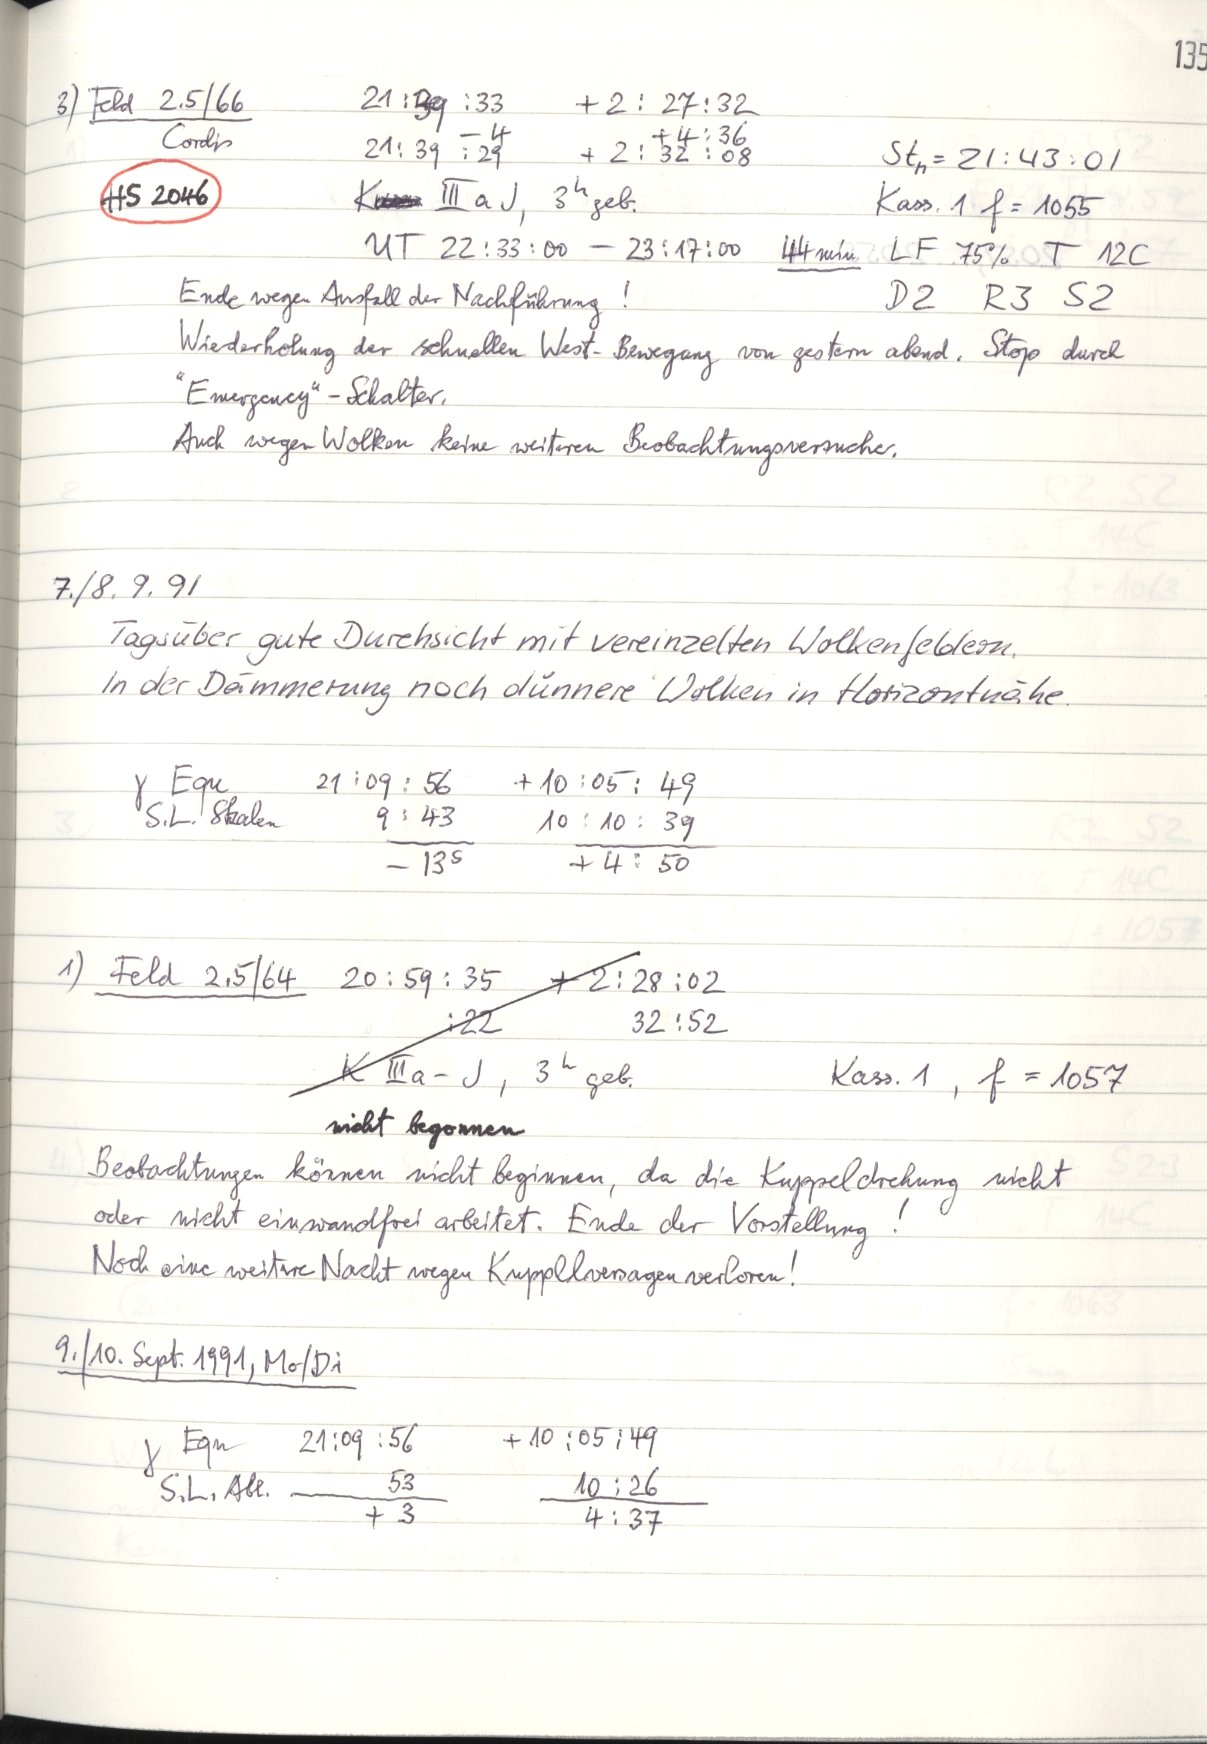 135
3) Feld 2.5/66 21:39:33 + 2:27:32
- 4 + 4:36
Cordis 21:39:29 + 2:32:08 St_n = 21:43:01
HS 2046 K III a J, 3^h geb. Kass. 1 f = 1055
UT 22:33:00 – 23:17:00 44 min LF 75% T 12C
Ende wegen Ausfall der Nachführung! D2 R3 S2
Wiederholung der schnellen West-Bewegung von gestern abend. Stop durch
"Emergency"-Schalter.
Auch wegen Wolken keine weiteren Beobachtungsversuche.
7./8. 9. 91
Tagsüber gute Durchsicht mit vereinzelten Wolkenfeldern.
In der Dämmerung noch dünnere Wolken in Horizontnähe.
γ Equ 21:09:56 + 10:05:49
S.L. Skalen 9:43 10:10:39
– 13^s + 4:50
1) Feld 2.5/64 20:59:35 + 2:28:02
:22 32:52
K IIIa-J, 3^h geb. Kass. 1, f = 1057
nicht begonnen
Beobachtungen können nicht beginnen, da die Kuppeldrehung nicht
oder nicht einwandfrei arbeitet. Ende der Vorstellung!
Noch eine weitere Nacht wegen Kuppelversagen verloren!
9./10. Sept. 1991, Mo/Di
γ Equ 21:09:56 + 10:05:49
S.L. Abl. 53 10:26
+ 3 4:37